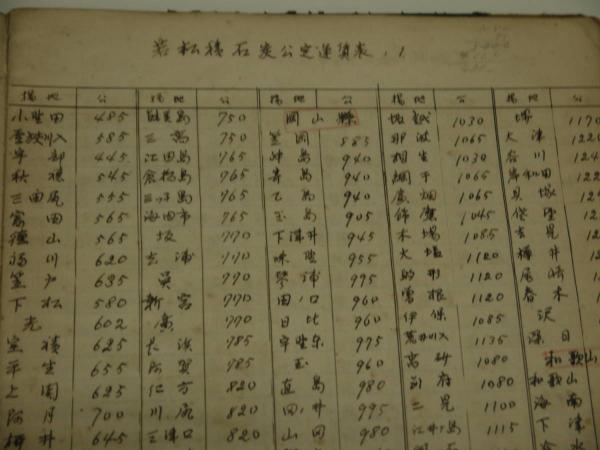 若松積石炭公定運賃表 . 1
揚地 公 揚地 公 揚地 公 揚地 公 揚地
小野田 485 750 岡山縣 坂越 1030 堺 1170
585 三高 750 笠岡 885 那波 1065 大津
宇部 445 江田島 765 神島 940 相生 1030 谷川
秋穂 545 倉橋島 765 寄島 940 網干 1065 岸和田
三田尻 555 三ッ子島 765 乙島 940 廣畑 1065 貝塚
富田 565 海田市 765 玉島 905 飾磨 1045
徳山 565 坂 770 下津井 945 木場 1085
福川 620 吉浦 770 味野 955 大塩 1120
笠戸 635 呉 770 琴浦 975 的形 1120 尾崎
下松 580 新宮 770 田ノ口 960 曽根 1120 春木
光 602 770 日比 960 伊保 1085
室積 625 長浜 785 宇野 975 荒井 1135 深日
平生 655 阿賀 785 玉 960 高砂 1080 和歌山
上関 625 仁方 820 直島 980 別府 1080 和歌山
阿月 700 川尻 820 田ノ井 995 二見 1100 海南
柳井 645 三津口 820 山田 980 江井ヶ島 1115 下津